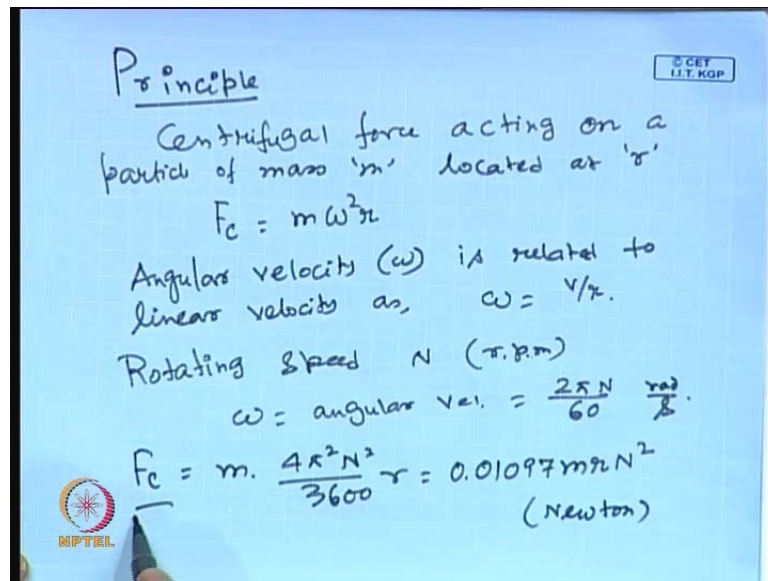 Principle
© CET
I.I.T. KGP
Centrifugal force acting on a
particle of mass 'm' located at 'r'
Fc = mω²r
Angular velocity (ω) is related to
linear velocity as, ω = v/r.
Rotating speed N (r.p.m)
ω = angular vel. = 2πN/60 rad/s.
Fc = m. 4π²N²/3600 r = 0.01097 mrN²
(Newton)
NPTEL